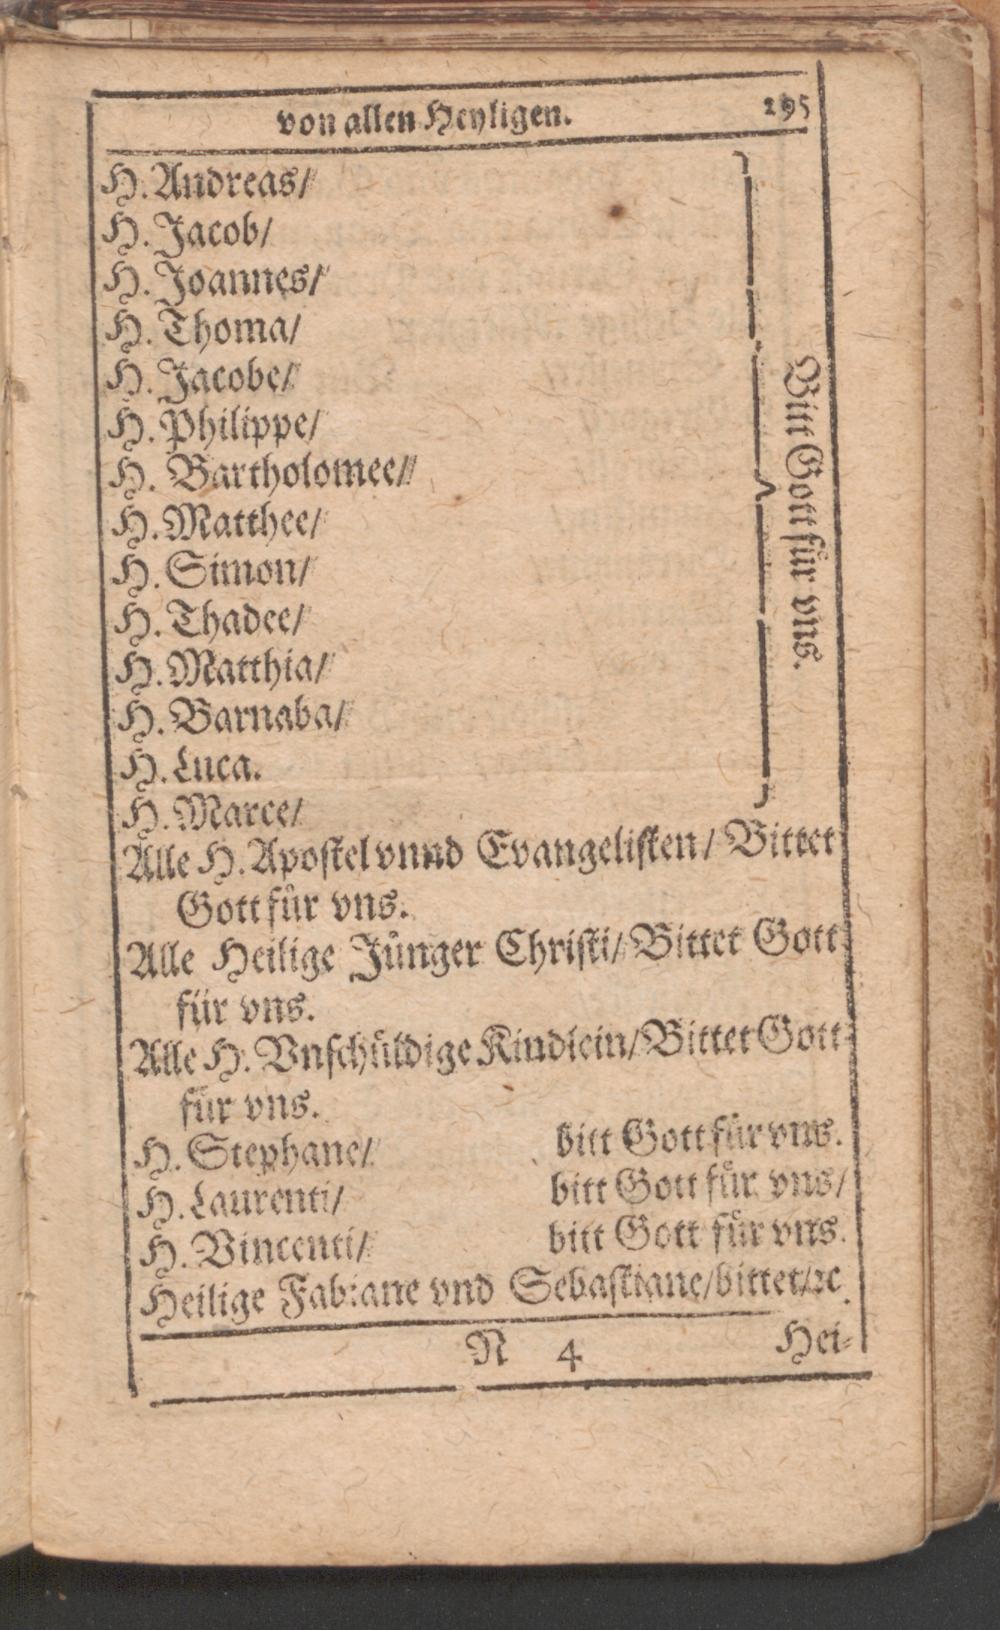 von allen Heyligen. 295
H. Andreas/
H. Jacob/
H. Joannes/
H. Thoma/
H. Jacobe/
H. Philippe/
H. Bartholomee/
H. Matthee/
H. Simon/
H. Thadee/
H. Matthia/
H. Barnaba/
H. Luca.
H. Marce/
Bitt Gott für vns.
Alle H. Apostel vnnd Evangelisten/ Bittet
Gott für vns.
Alle Heilige Jünger Christi/ Bittet Gott
für vns.
Alle H. Vnschüldige Kindlein/ Bittet Gott
für vns.
H. Stephane/ bitt Gott für vns.
H. Laurenti/ bitt Gott für vns/
H. Vincenti/ bitt Gott für vns.
Heilige Fabiane vnd Sebastiane/ bittet/ ꝛc.
N 4 Hei-